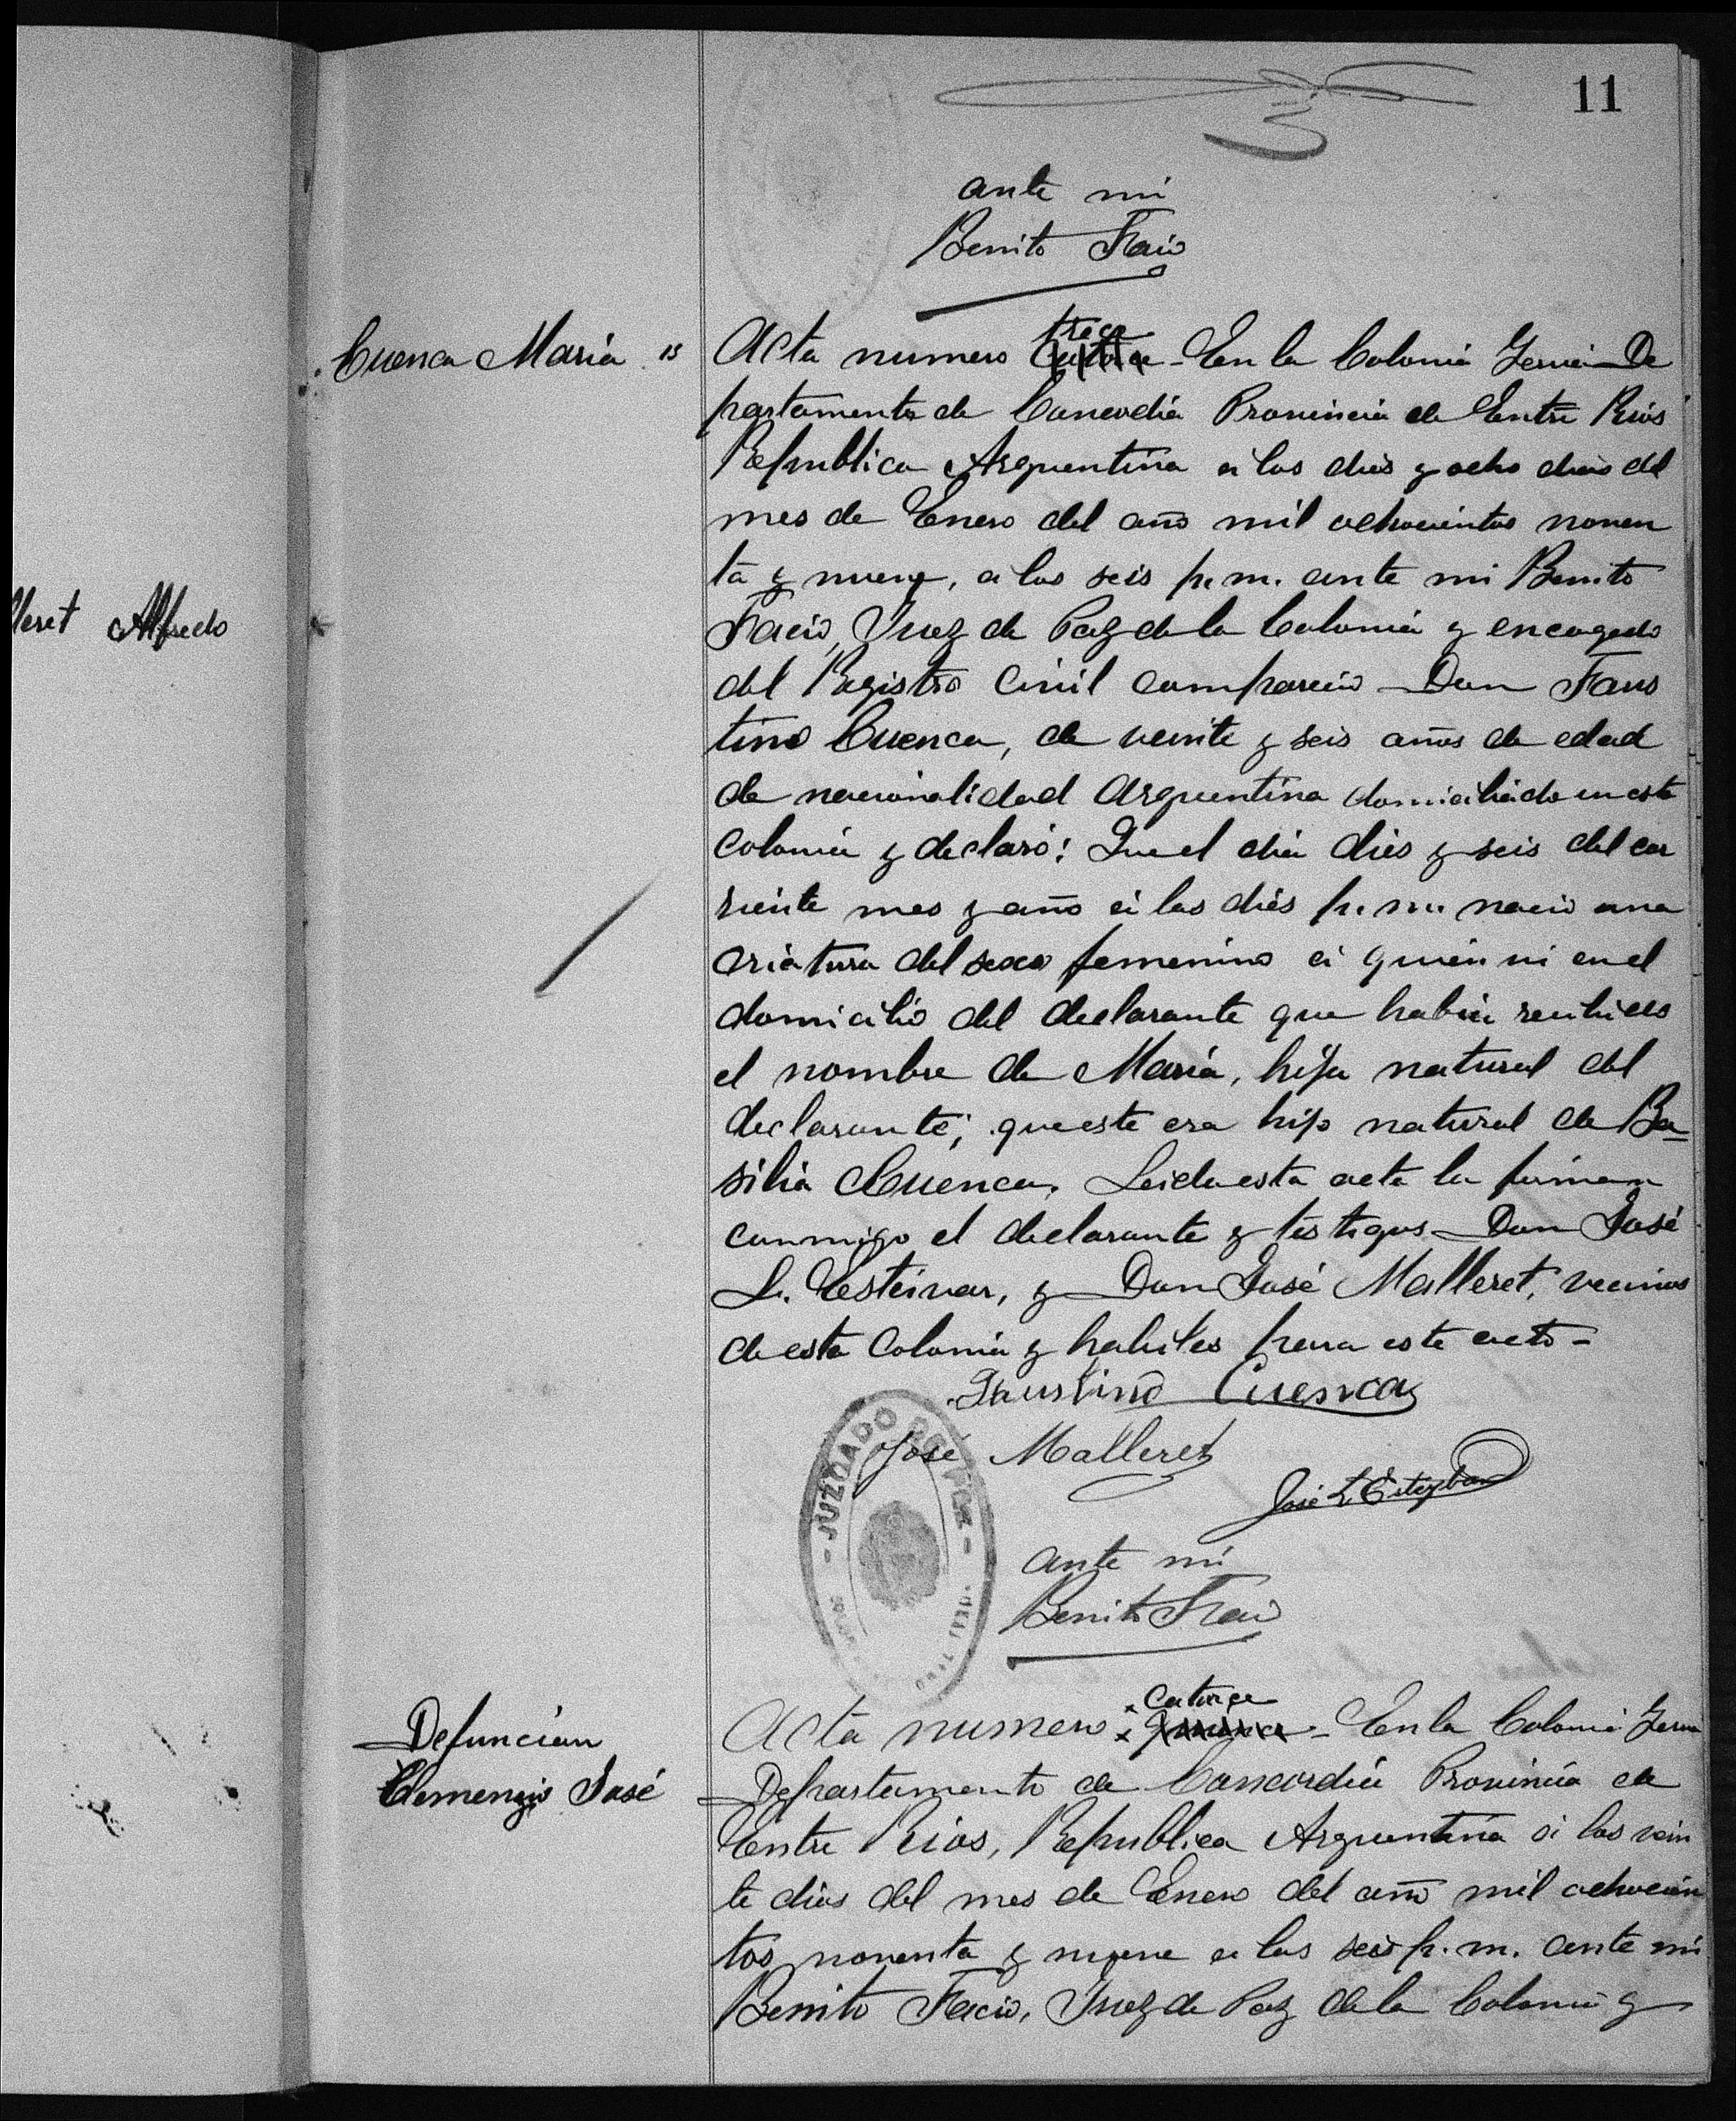 11
ante mi
Benito Facio
Cuenca María 13
Acta numero trece Catorce - En la Colonia Yeruá De
partamento de Concordia Provincia de Entre Rios
Republica Arguentina á los dies y ocho dias del
mes de Enero del año mil ochocientos noven
ta y nueve, a las seis p.m. ante mi Benito
Facio, Juez de Paz de la Colonia y encagado
del Registro Civil compareció Don Faus
tino Cuenca, de veinte y seis años de edad
de nacionalidad Arguentina domiciliado en esta
Colonia y declaró: Que el dia dies y seis del cor
riente mes y año á las diés p.m. nació una
criatura del sexo femenino á quien vi en el
domicilio del declarante que habia recibido
el nombre de María, hija natural del
declarante; que este era hijo natural de Ba-
silia Cuenca. Leida esta acta la firman
conmigo el declarante y testigos Don José
L. Esteivar, y Don José Malleret, vecinos
de esta Colonia y habiles para este acto -
Faustino Cuenca
José Malleret
José L Esteyban
JUZGADO DE PAZ
ante mi
Benito Facio
lleret Alfredo
Defuncion
Clemenzio José
Acta numero Catorce Quince - En la Colonia Yerua
Departamento de Concordia Provincia de
Entre Rios, Republica Arguentina á los vein
te dias del mes de Enero del año mil ochocien
tos noventa y nueve a las seis p.m. ante mi
Benito Facio, Juez de Paz de la Colonia y